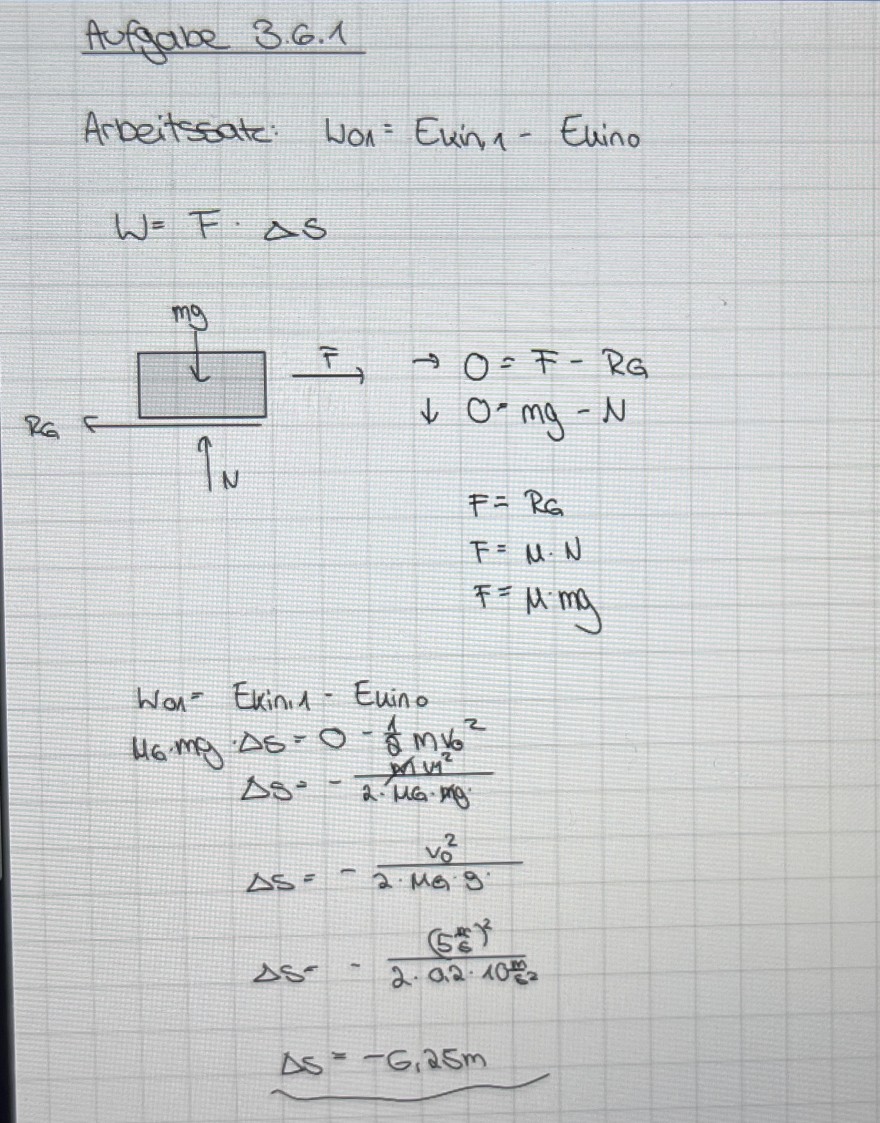 Aufgabe 3.6.1
Arbeitssatz: W01 = Ekin,1 - Ekin0
W = F · Δs
mg
F
RG
N
→ 0 = F - RG
↓ 0 = mg - N
F = RG
F = μ · N
F = μ · mg
W01 = Ekin,1 - Ekin0
μG · mg · Δs = 0 - 1/2 m v0²
Δs = - m v1² / 2 · μG · mg
Δs = - v0² / 2 · μG · g
Δs = - (5 m/s)² / 2 · 0,2 · 10 m/s²
Δs = -6,25m